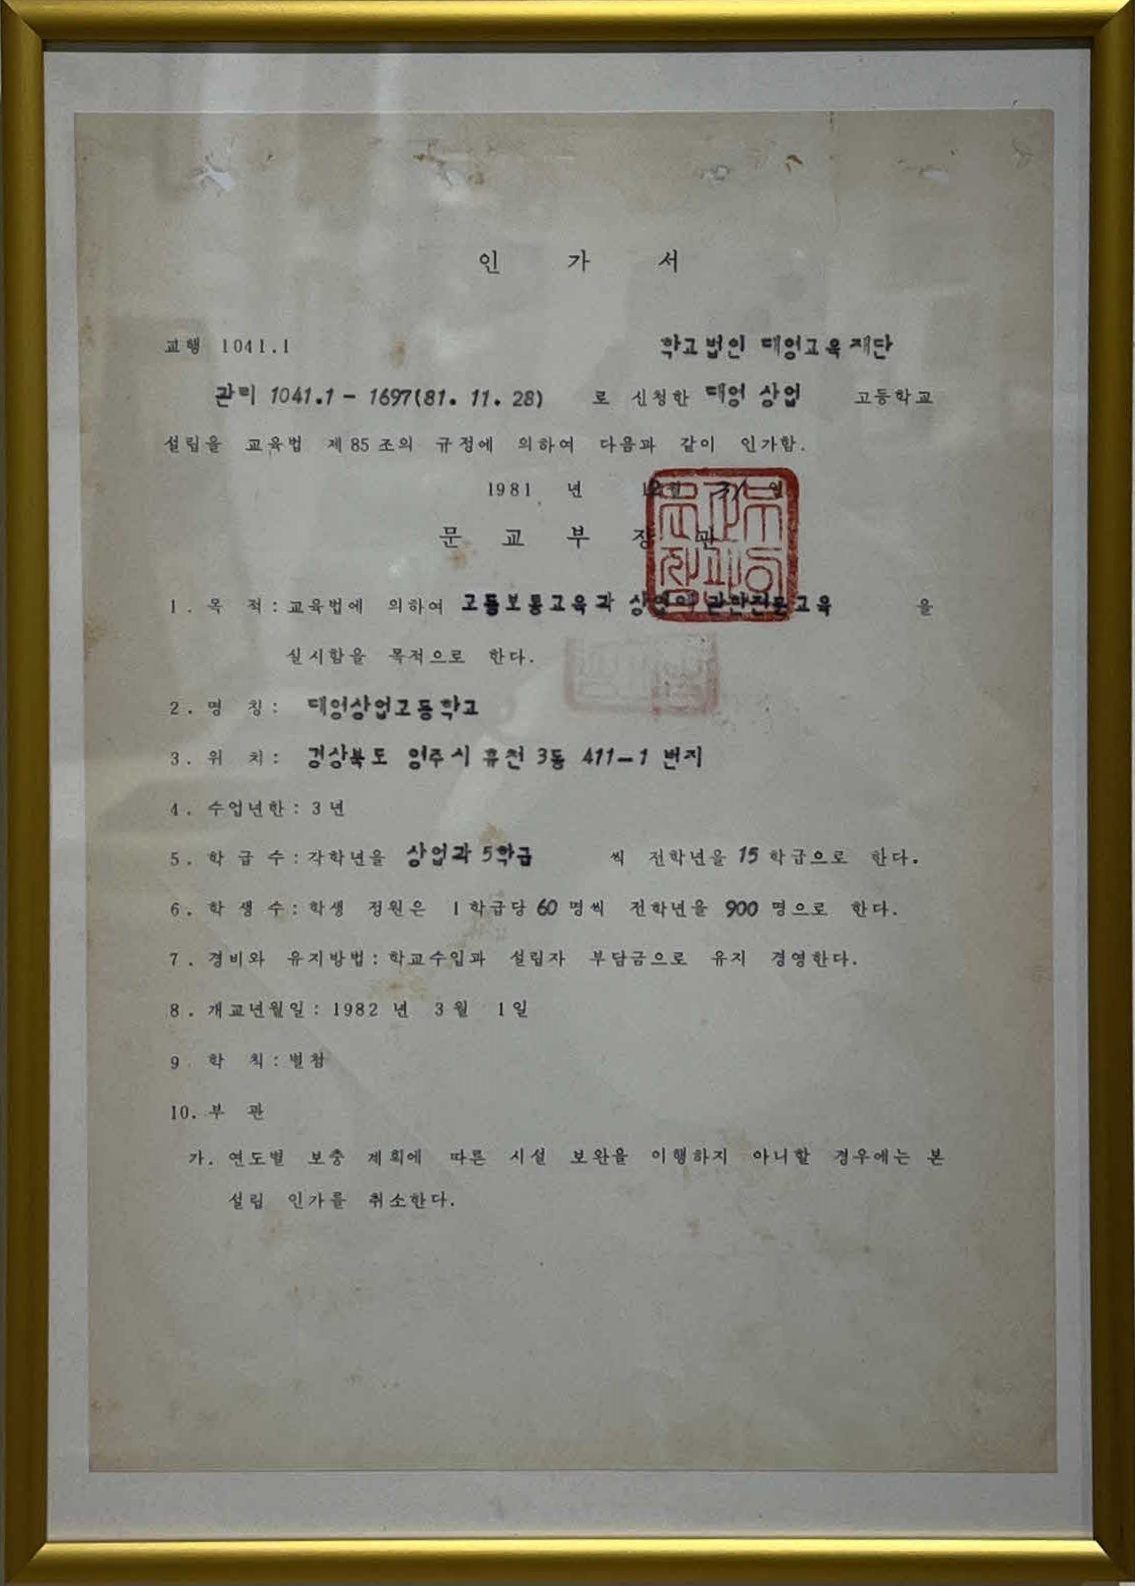 인 가 서
교행 1041.1 학교법인 대영교육재단
관리 1041.1 - 1697(81. 11. 28) 로 신청한 대영 상업 고등학교
설립을 교육법 제 85 조의 규정에 의하여 다음과 같이 인가함.
1981 년 12월 31 일
문 교 부 장 관
1. 목 적 : 교육법에 의하여 고등보통교육과 상업에 관한전문교육 을
실시함을 목적으로 한다.
2. 명 칭 : 대영상업고등학교
3. 위 치 : 경상북도 영주시 휴천 3동 411-1 번지
4. 수업년한 : 3 년
5. 학 급 수 : 각학년을 상업과 5학급 씩 전학년을 15 학급으로 한다.
6. 학 생 수 : 학생 정원은 1 학급당 60 명씩 전학년을 900 명으로 한다.
7. 경비와 유지방법 : 학교수입과 설립자 부담금으로 유지 경영한다.
8. 개교년월일 : 1982 년 3 월 1 일
9. 학 칙 : 별첨
10. 부 관
가. 연도별 보충 계획에 따른 시설 보완을 이행하지 아니할 경우에는 본
설립 인가를 취소한다.